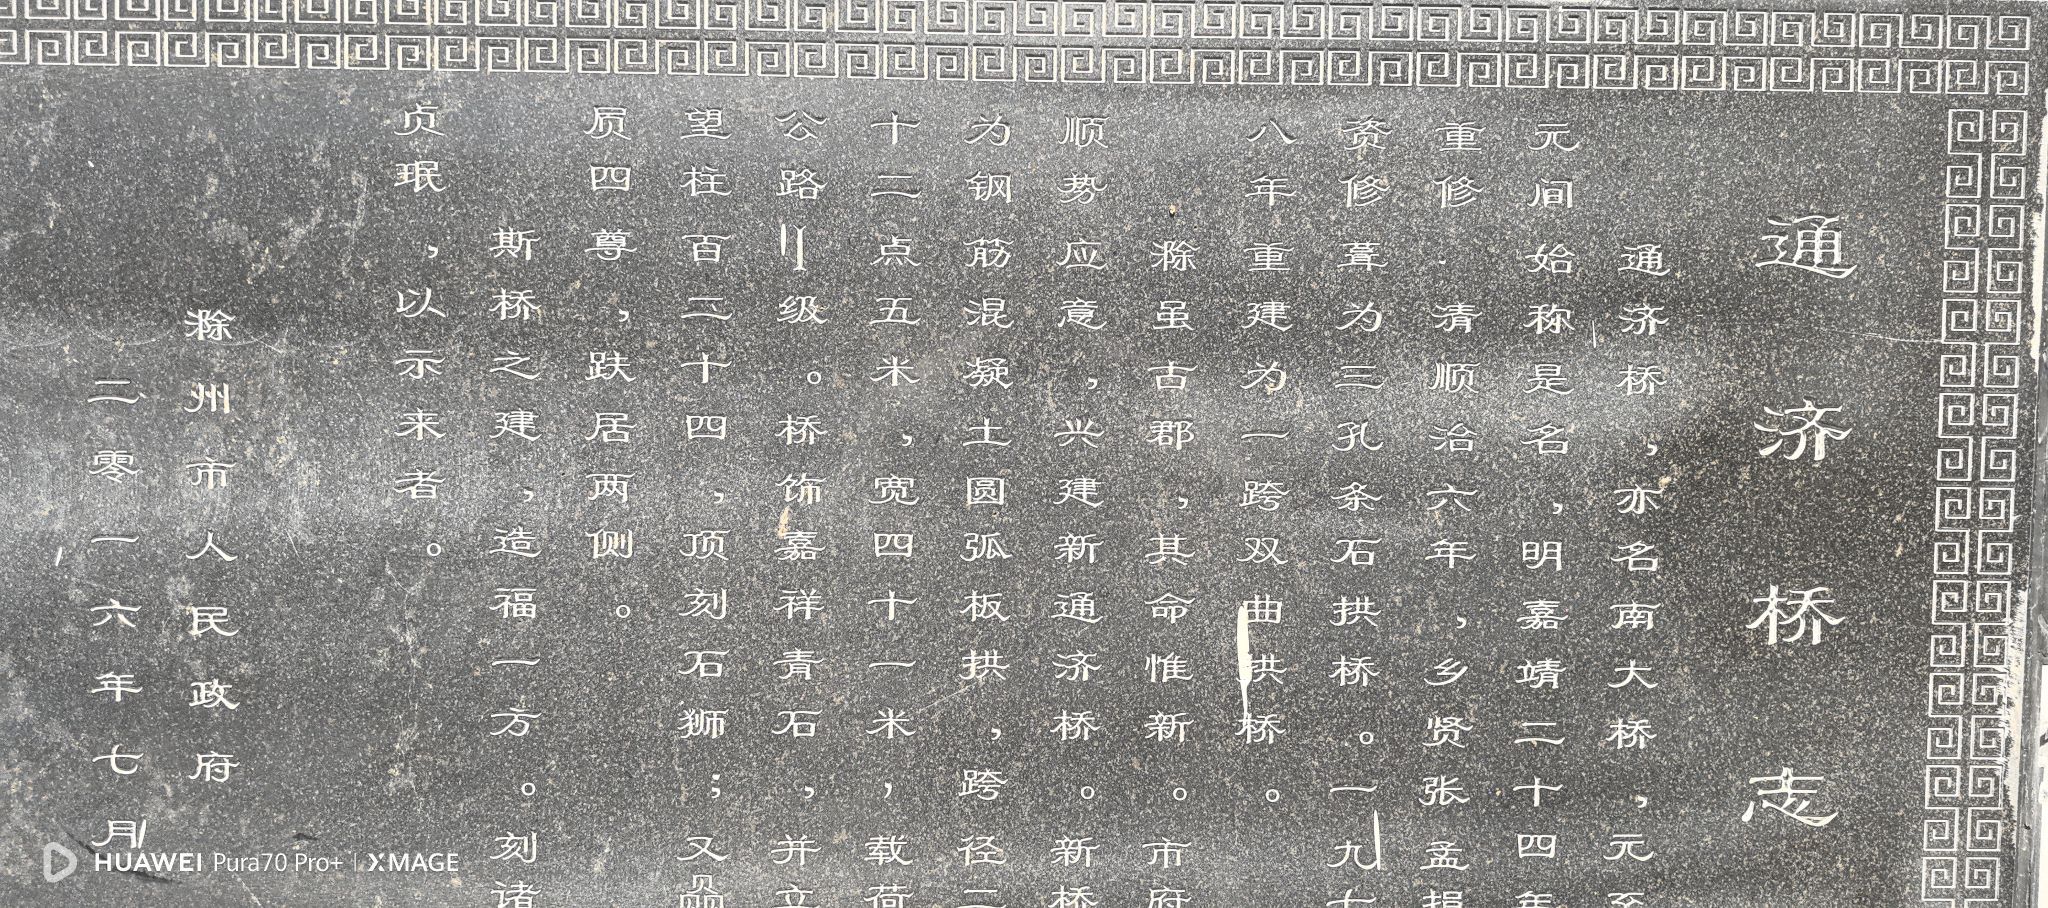 通济桥志
通济桥，亦名南大桥，元至
元间始称是名，明嘉靖二十四年
重修．清顺治六年，乡贤张孟捐
资修葺为三孔条石拱桥。一九七
八年重建为一跨双曲拱桥。
滁虽古郡，其命惟新。市府
顺势应意，兴建新通济桥。新桥
为钢筋混凝土圆弧板拱，跨径二
十二点五米，宽四十一米，载荷
公路Ⅱ级。桥饰嘉祥青石，并立
望柱百二十四，顶刻石狮；又
屃四尊，趺居两侧。
斯桥之建，造福一方。刻诸
贞珉，以示来者。
滁州市人民政府
二零一六年七月
HUAWEI Pura70 Pro+ | XMAGE